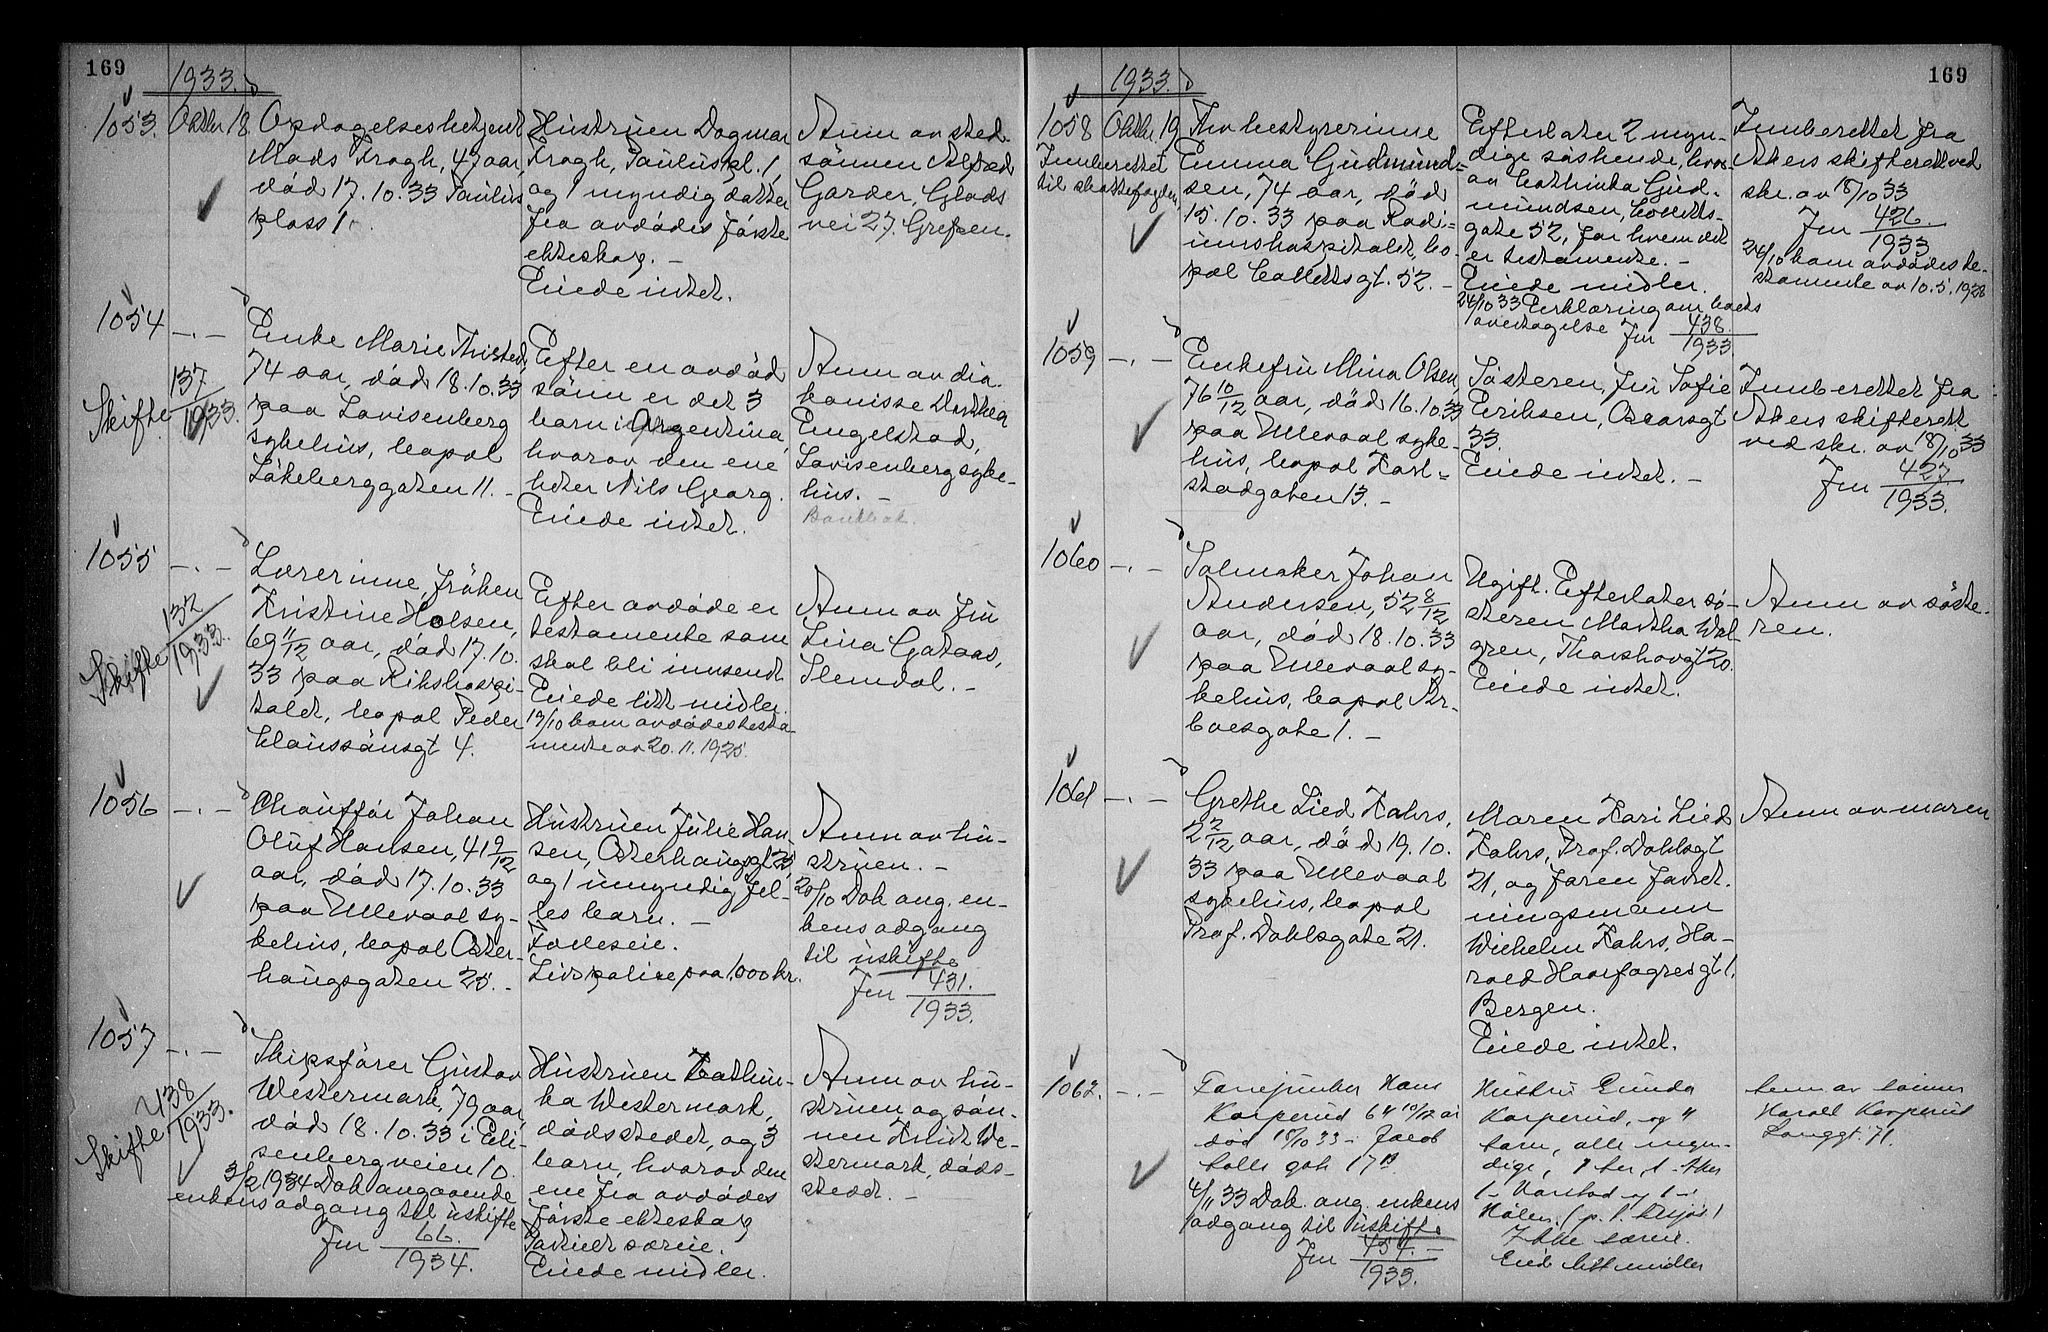 169
1933.
1053. Oktbr 18.
Opdagelsesbetjent
Mads Fragh, 47 aar,
död 17.10.33 Paulus
plass 1.
Hustruen Dagmar
Fragh, Pauluspl. 1,
og 1 myndig datter
fra avdödes förste
ekteskap. —
Eiede intet.
Anm av sted-
sönnen
Garder, Glads
vei 27. Grefsen.
1054 — . —
Skifte 137/1933.
Enke Marie Thisted,
74 aar, död 18.10.33
paa Lovisenberg
sykehus, bopæl
Låkeberggaten 11. —
Efter en avdöd
sönn er det 3
barn i Argentina,
hvorav den ene
heter Nils Georg.
Eiede intet.
Anm av dia-
konisse Dorthea
Engelstad,
Lovisenberg syke-
hus. —
1055 — . —
Skifte 132/1933.
Lærerinne, fröken
Kristine Holsen,
69 11/12 aar, död 17.10.
33 paa Rikshospi-
talet, bopæl Peder
Claussönsgt 4.
Efter avdöde er
testamente som
skal bli innsendt
Eiede litt midler.
19/10 kom avdödes testa-
mente av 20.11.1925.
Anm av fru
Lina Gataas,
Slemdal. —
1056 — . —
Chaufför Johan
Oluf Hansen, 41 9/12
aar, död 17.10.33
paa Ullevaal sy-
kehus, bopæl Öster-
haugsgaten 25. —
Hustruen Julie Han-
sen, Österhaugsgt 25,
og 1 umyndig fel-
les barn. —
Fælleseie.
Livspolise paa 1,000 kr.
Anm av hu-
struen. —
20/10 Dok ang. en-
kens adgang
til uskifte
Jnr 431./1933.
1057 — . —
Skifte 438/1933.
Skipsförer Gustav
Westermark, 79 aar,
död 18.10.33 i Eili-
senbergveien 10.
3/2 1934 Dok angaaende
enkens adgang til uskifte
Jnr 66./1934.
Hustruen Cathin-
ka Westermark,
dödsstedet, og 3
barn, hvorav den
ene fra avdödes
förste ekteskap
Partielt særeie.
Eiede midler.
Anm av hu-
struen og sön-
nen Knut We-
stermark, döds-
stedet. —
169
1933.
1058 Oktbr. 19.
Innberettet
til skattefogden
Fhv bestyrerinne
Emma Gudmund-
sen, 74 aar, död
15.10.33 paa Radi-
umshospitalet, bo-
pæl Collettsgt. 52. —
Efterlater 2 myn-
dige söskende, hvor-
av Cathinka Gud-
mundsen, Colletts-
gate 52, for hvem det
er testamente. —
Eiede midler.
24/10 33 Erklæring om boets
overtagelse Jnr 438./1933.
Innberettet fra
Akers skifterett ved
skr. av 18/10 33
Jnr 426./1933
24/10 kom avdödes te-
stamente av 10.5.1928
1059 — . —
Enkefru Mina Olsen
76 10/12 aar, död 16.10.33
paa Ullevaal syke-
hus, bopæl Karl-
stadgaten 13. —
Sösteren, fru Sofie
Eriksen, Oscarsgt
33.
Eiede intet. —
Innberettet fra
Akers skifterett
ved skr. av 18/10 33
Jnr 427/1933.
1060 — . —
Salmaker Johan
Andersen, 52 8/12
aar, död 18.10.33
paa Ullevaal sy-
kehus, bopæl Ar-
boesgate 1. —
Ugift. Efterlater sö-
steren Martha Wal-
gren, Thorshovgt 20.
Eiede intet.
Anm av söste-
ren.
1061 — . —
Grethe Lied Kahrs,
2 2/12 aar, död 19.10.
33 paa Ullevaal
sykehus, bopæl
Prof. Dahlsgate 21.
Moren Kari Lied
Kahrs, Prof. Dahlsgt
21, og faren forret-
ningsmann
Wilhelm Kahrs, Ha-
rald Haarfagresgt 1,
Bergen.
Eiede intet.
Anm av moren
1062. — . —
Hans
Korperud 64 10/12 år
död 18/10 33 — Jacob
Halls gate 17B
4/11 33 Dok. ang. enkens
adgang til uskifte
Jnr 454./1933.
Hustru Gunda
Korperud, og 4
barn, alle myn-
dige,
Ikke særeie.
Eied litt midler
Anm av sönnen
Harald Korperud
Langgt. 71.